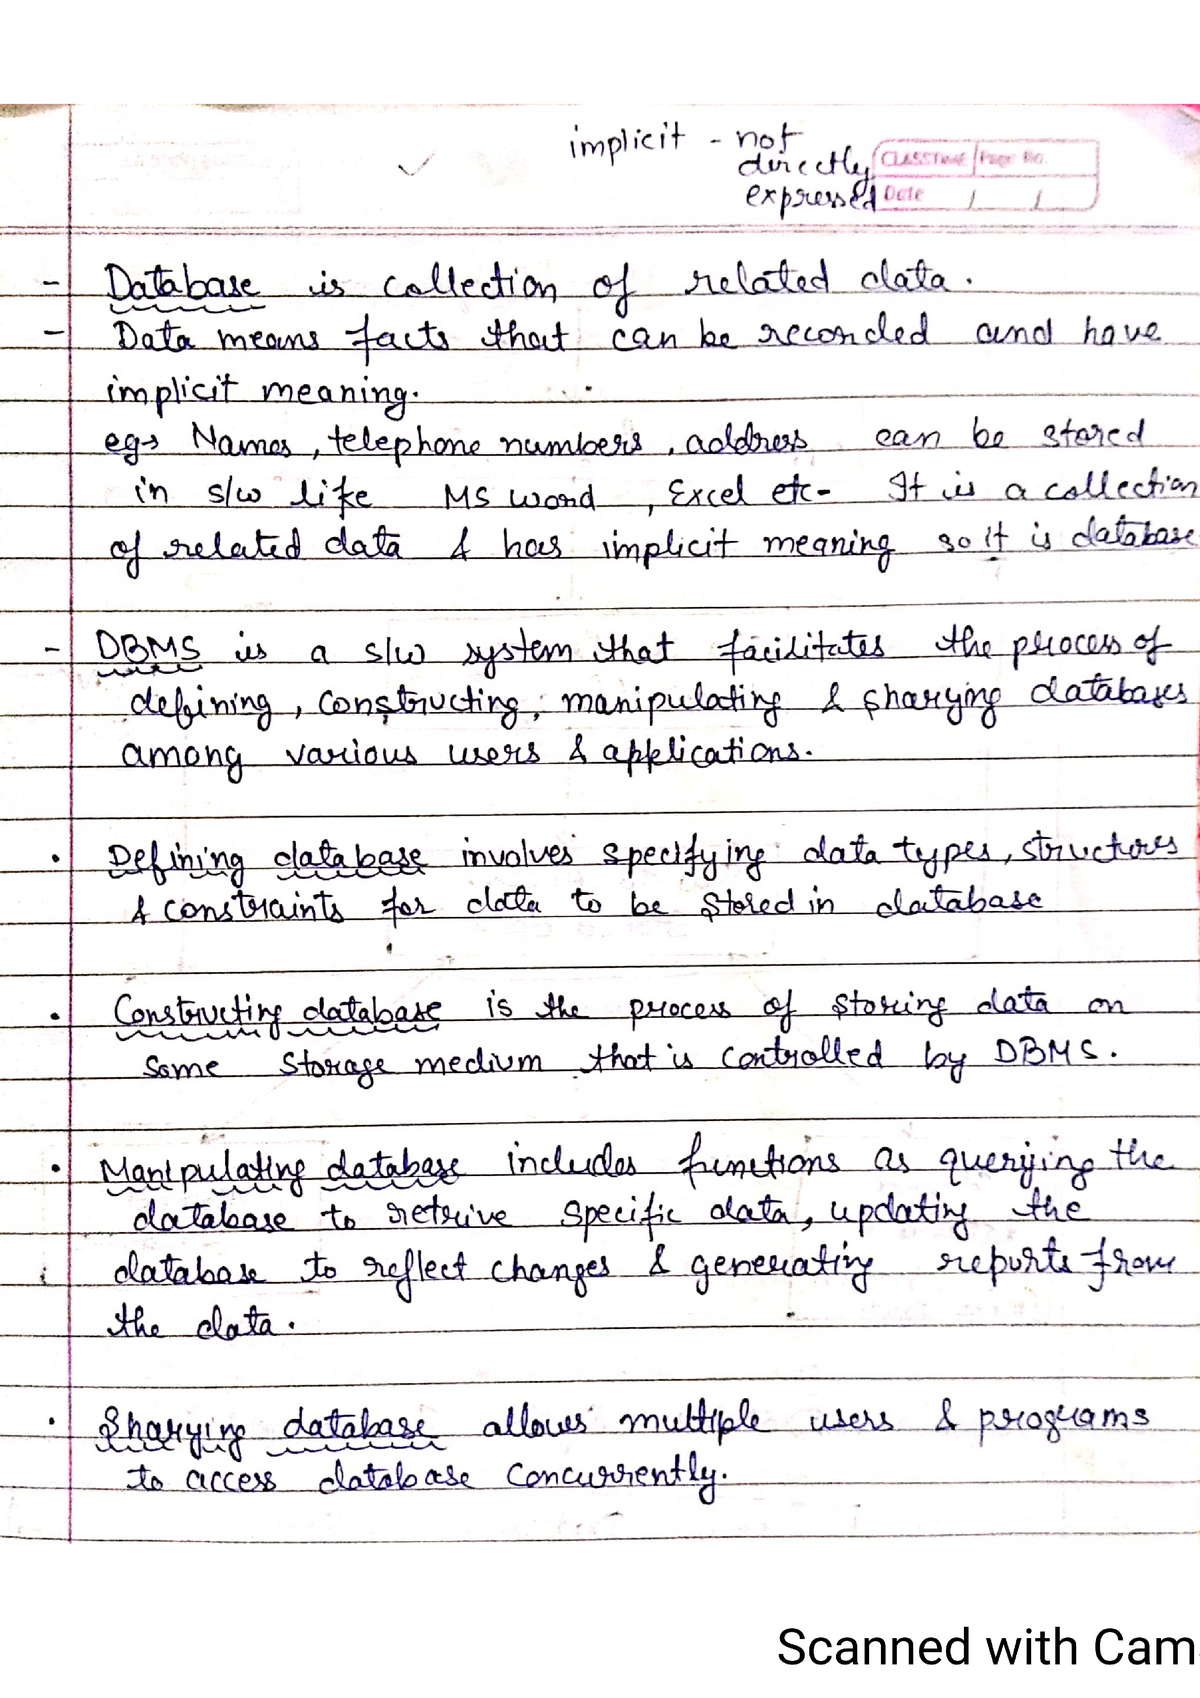 implicit - not
directly
expressed
CLASSTIME Page No.
Date / /
- Database is collection of related data.
- Data means facts that can be recorded and have
implicit meaning.
eg→ Names, telephone numbers, address can be stored
in s/w like MS Word, Excel etc- It is a collection
of related data & has implicit meaning so it is database
- DBMS is a s/w system that facilitates the process of
defining, constructing, manipulating & sharying databases
among various users & applications.
• Defining database involves specifying data types, structures
& constraints for data to be stored in database
• Constructing database is the process of storing data on
some storage medium that is controlled by DBMS.
• Manipulating database includes functions as querying the
database to retrive specific data, updating the
database to reflect changes & generating reports from
the data.
• Sharying database allows multiple users & programs
to access database concurrently.
Scanned with Cam